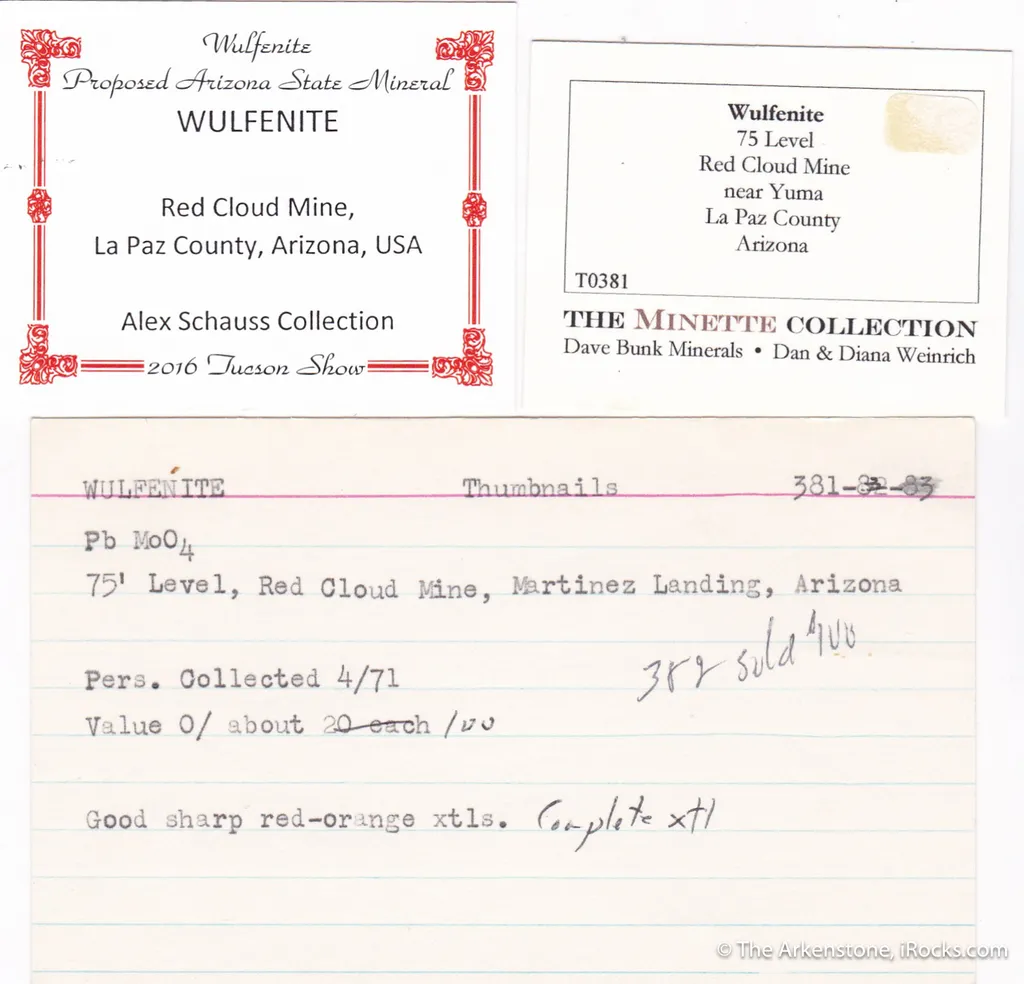 Wulfenite
Proposed Arizona State Mineral
WULFENITE
Red Cloud Mine,
La Paz County, Arizona, USA
Alex Schauss Collection
2016 Tucson Show
Wulfenite
75 Level
Red Cloud Mine
near Yuma
La Paz County
Arizona
T0381
THE MINETTE COLLECTION
Dave Bunk Minerals • Dan & Diana Weinrich
WULFENITE Thumbnails 381-82-83
Pb MoO4
75' Level, Red Cloud Mine, Martinez Landing, Arizona
382 sold $100
Pers. Collected 4/71
Value 0/ about 20 each 100
Good sharp red-orange xtls. Complete xtl
© The Arkenstone, iRocks.com